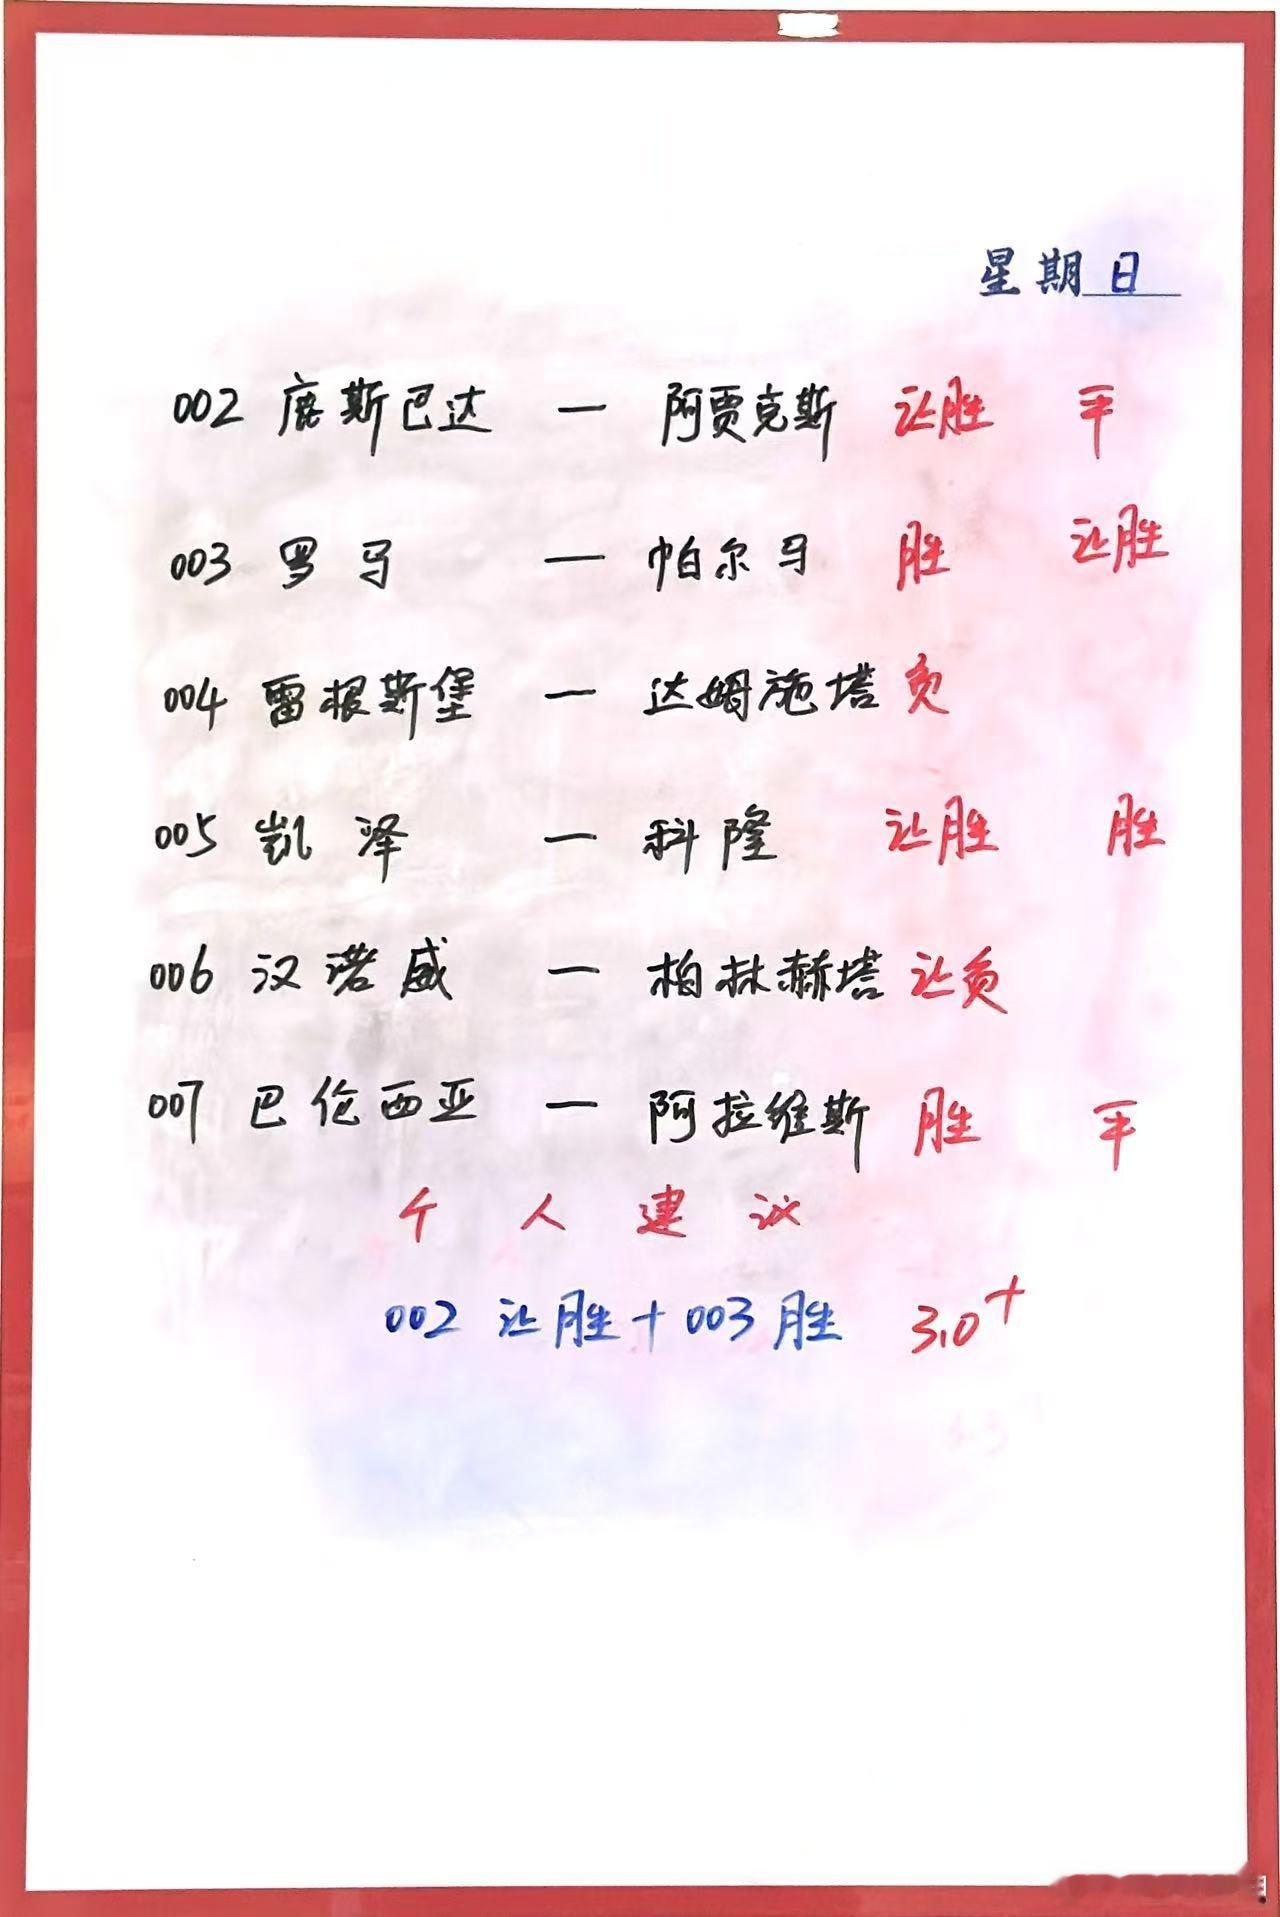 星期日
002 鹿斯巴达 — 阿贾克斯 让胜 平
003 罗马 — 帕尔马 胜 让胜
004 雷根斯堡 — 达姆施塔 负
005 凯泽 — 科隆 让胜 胜
006 汉诺威 — 柏林赫塔 让负
007 巴伦西亚 — 阿拉维斯 胜 平
个人建议
002 让胜+003胜 3.0+